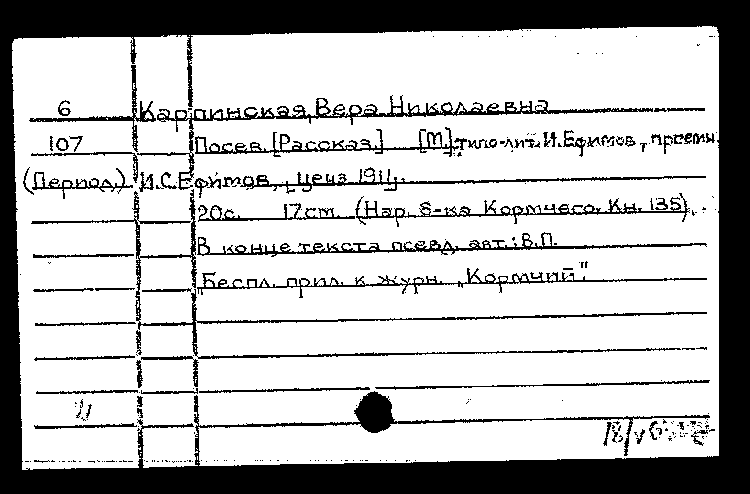 6 Карпинская, Вера Николаевна
107 Посев. [Рассказ.] [М.], типо-лит. И. Ефимов, преемн.
(Период.) И.С. Ефимов, [ценз 1911].
20с. 17cm. (Нар. б-ка Кормчего. Кн. 135).
В конце текста псевд. авт.: В.П.
Беспл. прил. к журн. „Кормчий".